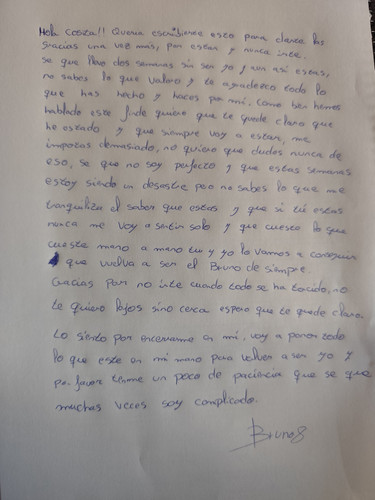 Hola Cosita!! Quería escribirte esto para darte las
gracias una vez más, por estar y nunca irte.
se que llevo dos semanas sin ser yo y aun asi estas,
no sabes lo que valoro y te agradezco todo lo
que has hecho y haces por mi. Como bien hemos
hablado este finde quiero que te quede claro que
he estado y que siempre voy a estar, me
importas demasiado, no quiero que dudes nunca de
eso, se que no soy perfecto y que estas semanas
estoy siendo un desastre pero no sabes lo que me
tranquiliza el saber que estas y que si tú estas
nunca me voy a sentir solo y que cueste lo que
cueste mano a mano tu y yo lo vamos a conseguir
que vuelva a ser el Bruno de siempre.
Gracias por no irte cuando todo se ha torcido, no
te quiero lejos sino cerca espero que te quede claro.
Lo siento por encerrarme en mi, voy a poner todo
lo que este en mi mano para volver a ser yo y
por favor tenme un poco de paciencia que se que
muchas veces soy complicado.
Bruno